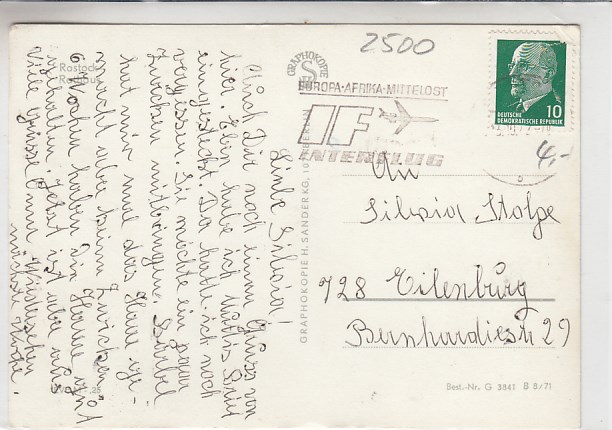 2500
Rostock
Rathaus
GRAPHOKOPIE
EUROPA·AFRIKA·MITTELOST
IF
INTERFLUG
10
DEUTSCHE
DEMOKRATISCHE REPUBLIK
4,-
Liebe Silvia!
Auch Dir noch einen Gruß von
hier. Eben habe ich Muttis Brief
eingesteckt. Da hatte ich noch
vergessen. Sie möchte ein paar
Zwecken mitbringen. Bärbel
hat mir mal das Haar
macht aber beim
6 Wochen haben die Haare
gehalten. Jetzt ist aber
Viele Grüße Omi
Wiedersehen
nächste Woche.
An
Silvia Stolpe
728 Eilenburg
Bernhardistr. 29
GRAPHOKOPIE H. SANDER KG, 10 BERLIN
Best.-Nr. G 3841 B 8/71